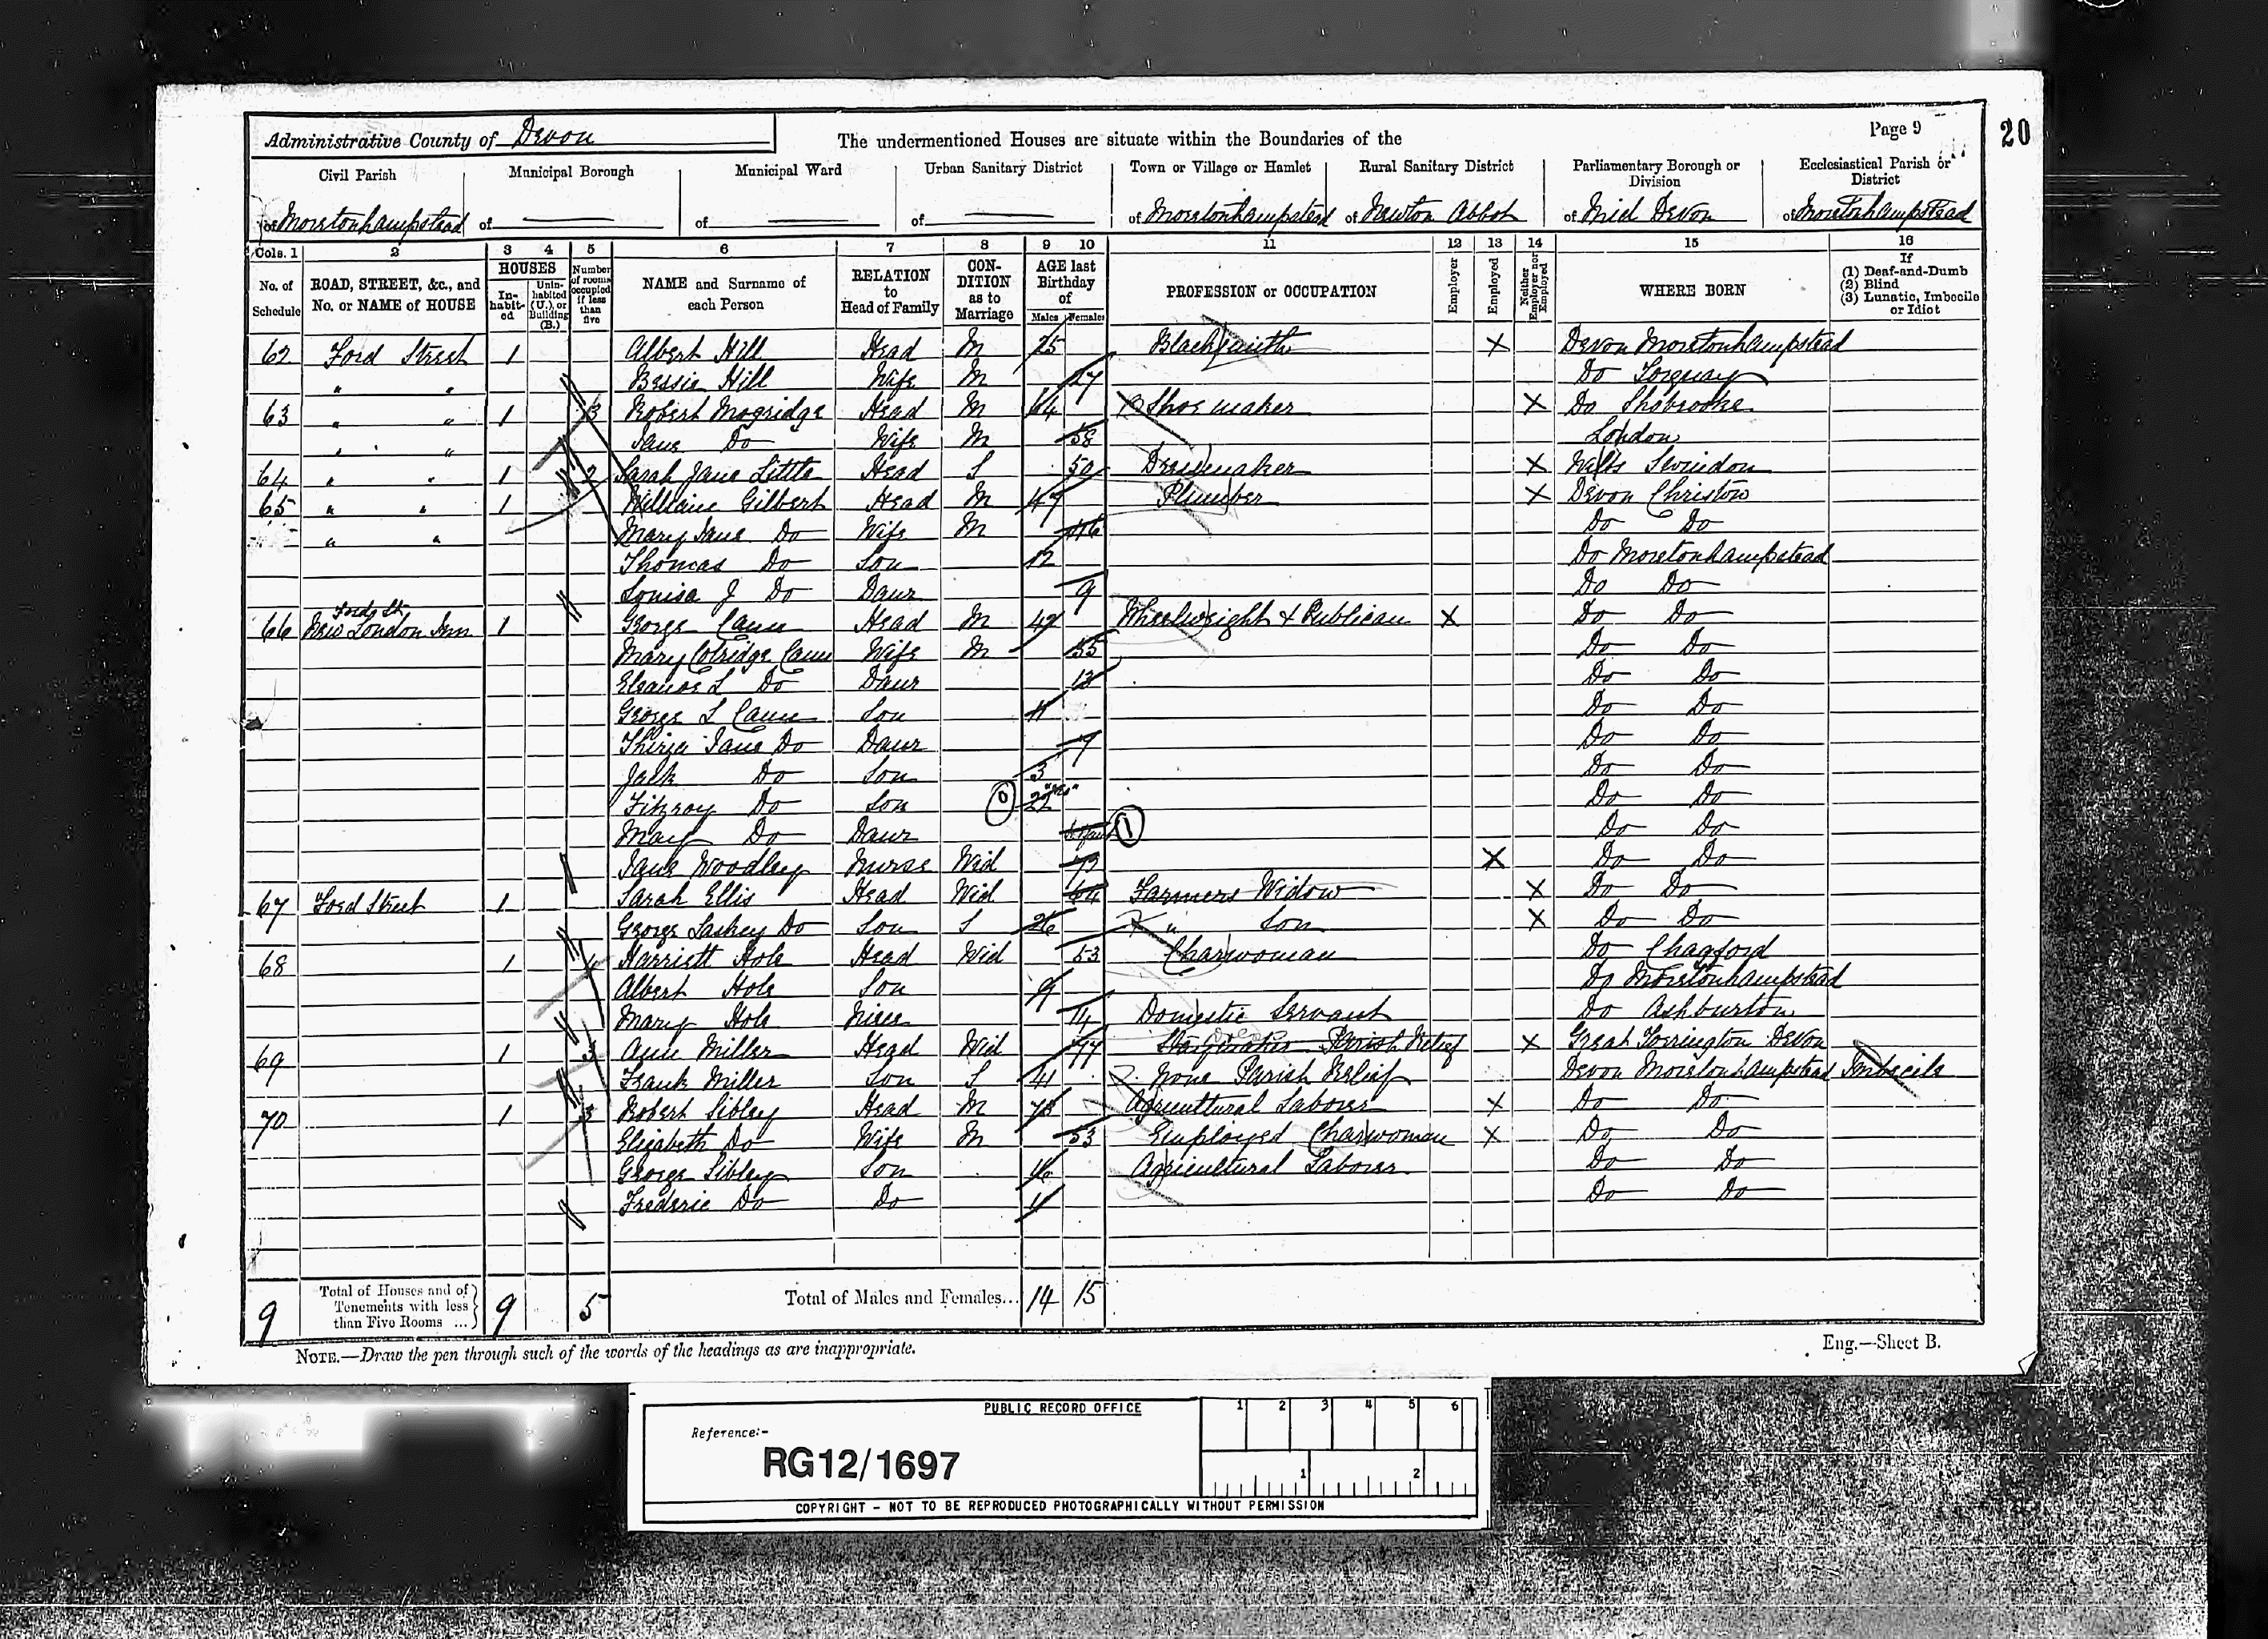 Page 9
20
Administrative County of Devon
The undermentioned Houses are situate within the Boundaries of the
Civil Parish Municipal Borough Municipal Ward Urban Sanitary District Town or Village or Hamlet Rural Sanitary District Parliamentary Borough or Division Ecclesiastical Parish or District
of Moretonhampstead of of of of Moretonhampstead of Newton Abbot of Mid Devon of Moretonhampstead
Cols. 1 2 3 4 5 6 7 8 9 10 11 12 13 14 15 16
No. of Schedule ROAD, STREET, &c., and No. or NAME of HOUSE HOUSES Inhabited Uninhabited (U.), or Building (B.) Number of rooms occupied if less than five NAME and Surname of each Person RELATION to Head of Family CONDITION as to Marriage AGE last Birthday of Males Females PROFESSION or OCCUPATION Employer Employed Neither Employer nor Employed WHERE BORN If (1) Deaf-and-Dumb (2) Blind (3) Lunatic, Imbecile or Idiot
62 Ford Street 1 Albert Hill Head M 25 Blacksmith X Devon Moretonhampstead
" " Bessie Hill Wife M 27 Do Torquay
63 " " 1 3 Robert Mogridge Head M 64 Shoe maker X Do Shobrooke
" " Jane Do Wife M 58 London
64 " " 1 2 Sarah Jane Little Head S 50 Dressmaker X Wilts Swindon
65 " " 1 William Gilbert Head M 47 Plumber X Devon Christow
" " Mary Jane Do Wife M 46 Do Do
Thomas Do Son 12 Do Moretonhampstead
Louisa J Do Daur 9 Do Do
Ford St
66 New London Inn 1 George Cann Head M 42 Wheelwright & Publican X Do Do
Mary Colridge Cann Wife M 35 Do Do
Eleanor L Do Daur 13 Do Do
George L Cann Son 11 Do Do
Thirza Jane Do Daur 7 Do Do
Jack Do Son 3 Do Do
Fitzroy Do Son 0 22 mos Do Do
May Do Daur 1 Do Do
Jane Woodley Nurse Wid 73 X Do Do
67 Ford Street 1 Sarah Ellis Head Wid 64 Farmers Widow X Do Do
George Laskey Do Son S 26 " Son X Do Do
68 1 4 Harriett Hole Head Wid 53 Charwoman Do Chagford
Albert Hole Son 9 Do Moretonhampstead
Mary Hole Niece 14 Domestic Servant Do Ashburton
69 1 3 Ann Miller Head Wid 77 Parish Relief X Great Torrington Devon
Frank Miller Son S 41 None Parish Relief Devon Moretonhampstead Imbecile
70 1 3 Robert Sibley Head M 73 Agricultural Laborer X Do Do
Elizabeth Do Wife M 53 Employed Charwoman X Do Do
George Sibley Son 16 Agricultural Laborer Do Do
Frederic Do Do 11 Do Do
9 Total of Houses and of Tenements with less than Five Rooms ... 9 5 Total of Males and Females... 14 15
NOTE.—Draw the pen through such of the words of the headings as are inappropriate.
Eng.—Sheet B.
PUBLIC RECORD OFFICE
1 2 3 4 5 6
Reference:-
RG12/1697
1 2
COPYRIGHT - NOT TO BE REPRODUCED PHOTOGRAPHICALLY WITHOUT PERMISSION